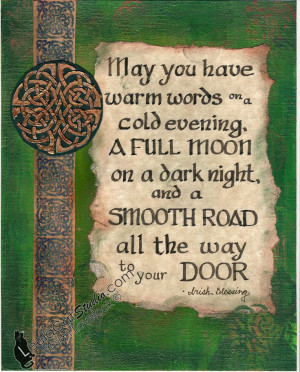 May you have
warm words on a
cold evening,
A FULL MOON
on a dark night,
and a
SMOOTH ROAD
all the way
to your DOOR
- Irish Blessing
Studio.com